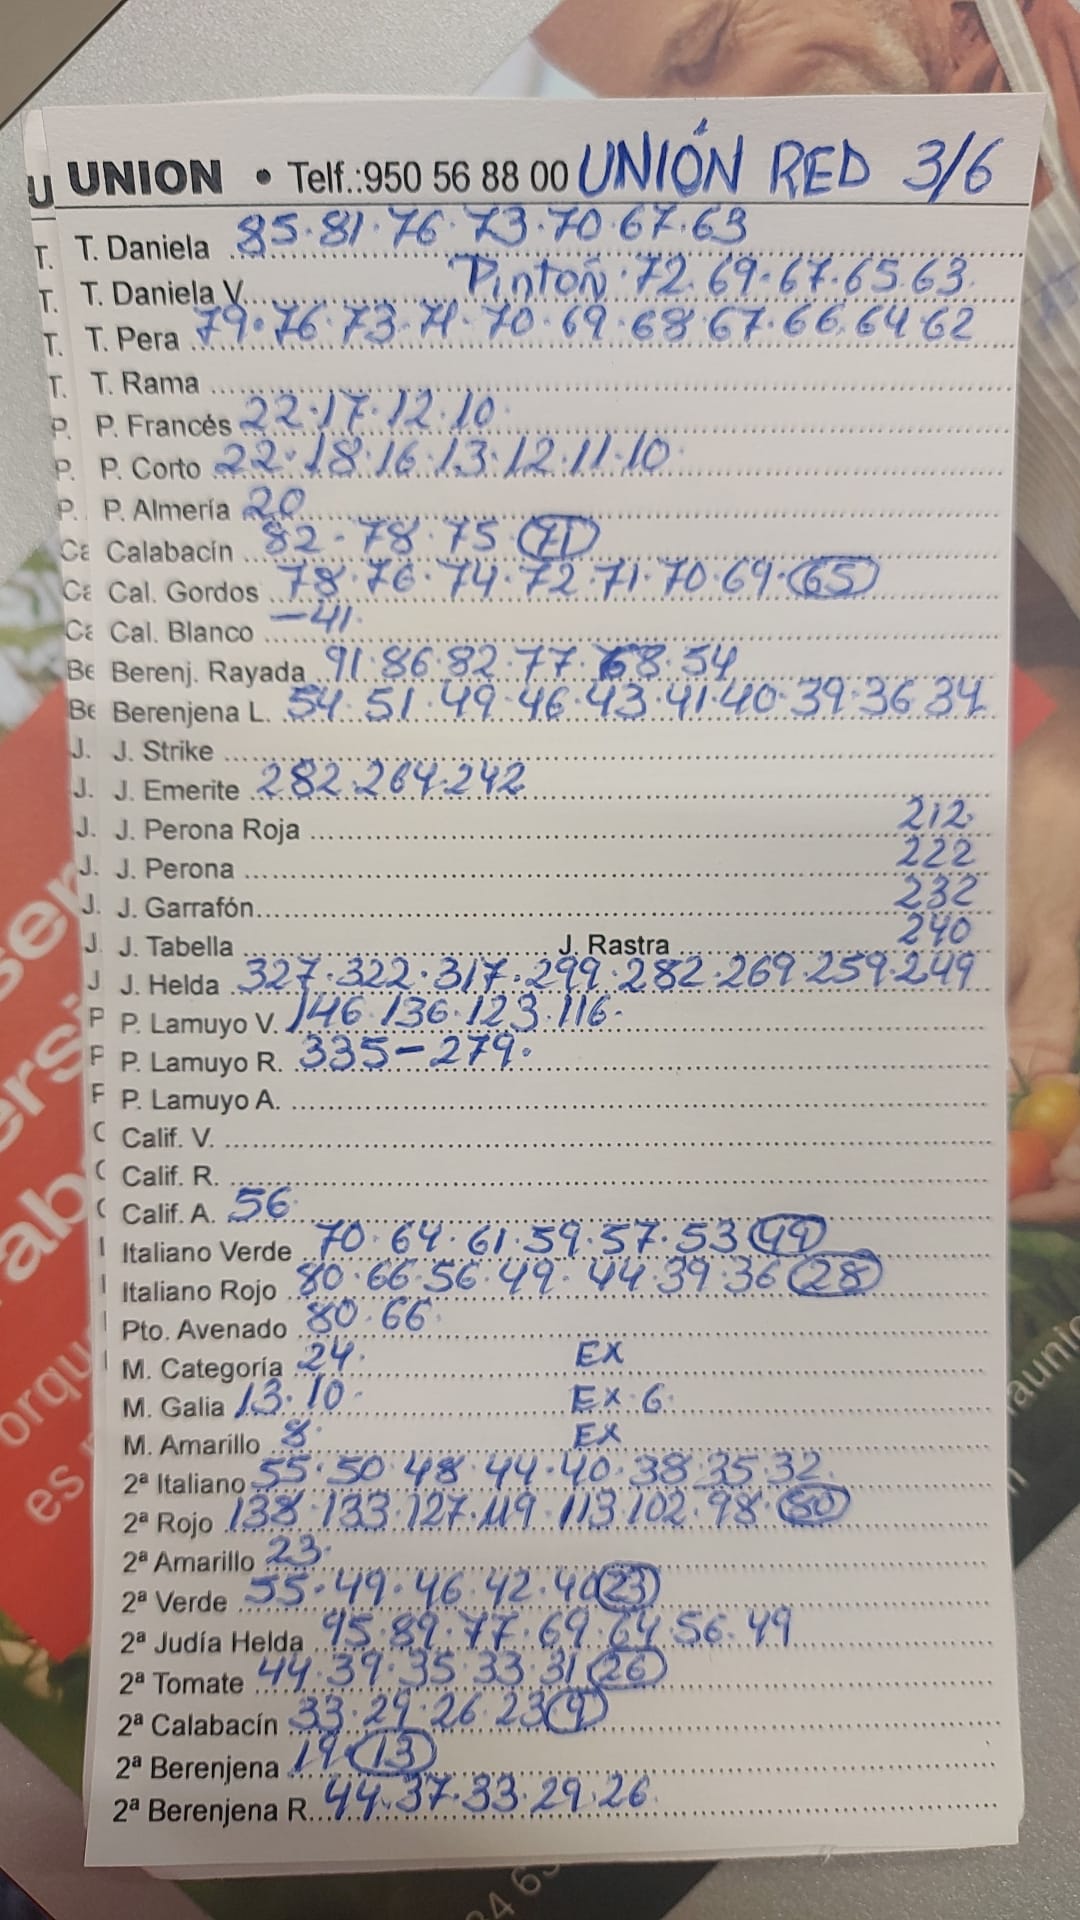 UNION • Telf.:950 56 88 00 UNIÓN RED 3/6
T. Daniela 85·81·76·73·70·67·63
T. Daniela V. Pinton·72·69·67·65·63
T. Pera 79·76·73·71·70·69·68·67·66·64·62
T. Rama
P. Francés 22·17·12·10
P. Corto 22·18·16·13·12·11·10
P. Almería 20
Calabacín 82-78·75 71
Cal. Gordos 78·76·74·72·71·70·69·65
Cal. Blanco -41
Berenj. Rayada 91·86·82·77·68·54
Berenjena L. 54·51·49·46·43·41·40·39·36·34
J. Strike
J. Emerite 282·264·242
J. Perona Roja 212
J. Perona 222
J. Garrafón 232
J. Tabella J. Rastra 240
J. Helda 327·322·317·299·282·269·259·249
P. Lamuyo V. 146·136·123·116
P. Lamuyo R. 335-279
P. Lamuyo A.
Calif. V.
Calif. R.
Calif. A. 56
Italiano Verde 70·64·61·59·57·53 49
Italiano Rojo 80·66·56·49·44·39·36 28
Pto. Avenado 80·66
M. Categoría 24 EX
M. Galia 13·10 EX·6
M. Amarillo 8 EX
2ª Italiano 55·50·48·44·40·38·35·32
2ª Rojo 138·133·127·119·113·102·98·80
2ª Amarillo 23
2ª Verde 55·49·46·42·40 23
2ª Judía Helda 95·89·77·69·64·56·49
2ª Tomate 44·39·35·33·31 26
2ª Calabacín 33·29·26·23 9
2ª Berenjena 19 13
2ª Berenjena R. 44·37·33·29·26